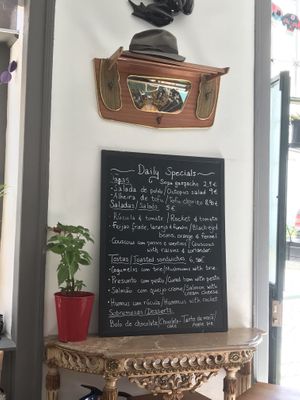 Daily Specials
Tapas Soya gazpacho 2,5€
• Salada de polvo/Octopus salad 9€
• Alheira de tofu/Tofu chorizo 8,90€
Saladas/Salads 5€
Rúcula & tomate / Rocket & tomato
Feijão frade, laranja & funcho/Black-eyed
beans, orange & fennel
Couscous com passas e coentros/Couscous
with raisins & coriander
Tostas/Toasted sandwiches 6,50€
• Cogumelos com brie/Mushrooms with brie
• Presunto com pesto/Cured ham with pesto
• Salmão com queijo creme/Salmon with
cream cheese
• Humus com rúcula/Hummus with rocket
Sobremesas/Desserts
Bolo de chocolate/Chocolate Tarte de maçã/
cake Apple pie